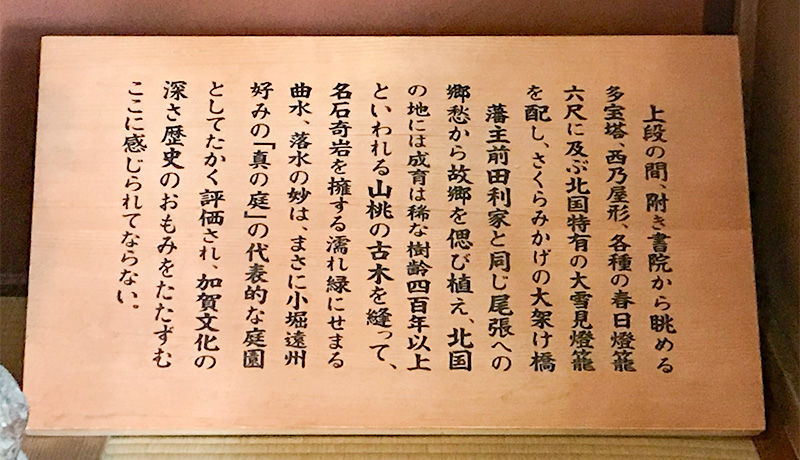 上段の間、附き書院から眺める
多宝塔、西乃屋形、各種の春日燈籠
六尺に及ぶ北国特有の大雪見燈籠
を配し、さくらみかげの大架け橋
藩主前田利家と同じ尾張への
郷愁から故郷を偲び植え、北国
の地には成育は稀な樹齢四百年以上
といわれる山桃の古木を縫って、
名石奇岩を擁する濡れ縁にせまる
曲水、落水の妙は、まさに小堀遠州
好みの「真の庭」の代表的な庭園
としてたかく評価され、加賀文化の
深さ歴史のおもみをたたずむ
ここに感じられてならない。